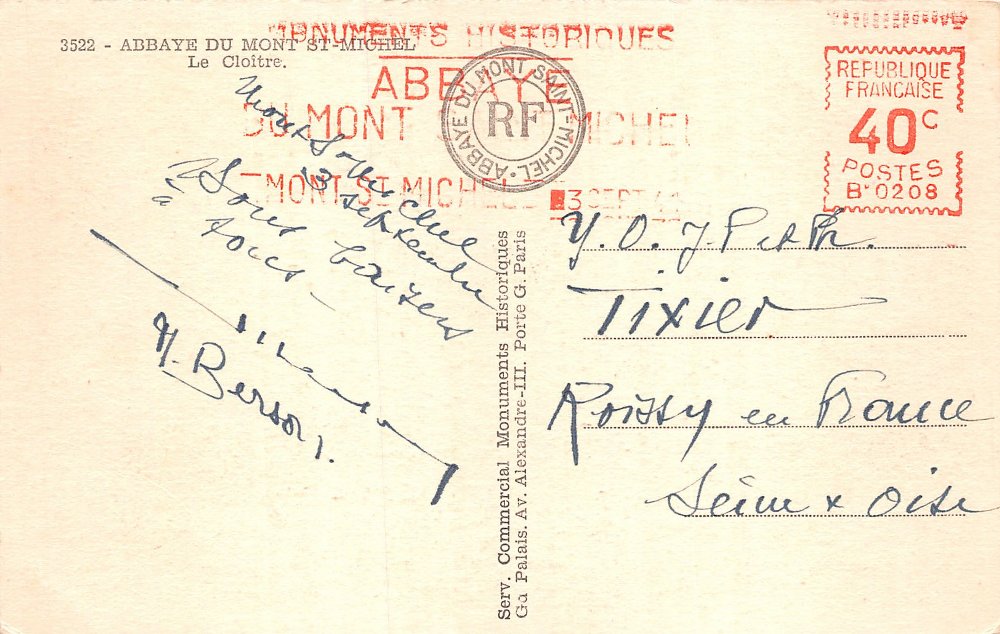 3522 - ABBAYE DU MONT ST-MICHEL
Le Cloître.
MONUMENTS HISTORIQUES
ABBAYE
DU MONT MICHEL
MONT ST MICHEL 3 SEPT
ABBAYE DU MONT SAINT-MICHEL
RF
REPUBLIQUE
FRANÇAISE
40 C
POSTES
B 0208
Mont St Michel
3 septembre
Bons baisers
à tous
M. Berson
Y. O. J. P et Ph.
Tixier
Roissy en France
Seine & Oise
Serv. Commercial Monuments Historiques
Gd Palais. Av. Alexandre-III. Porte G. Paris